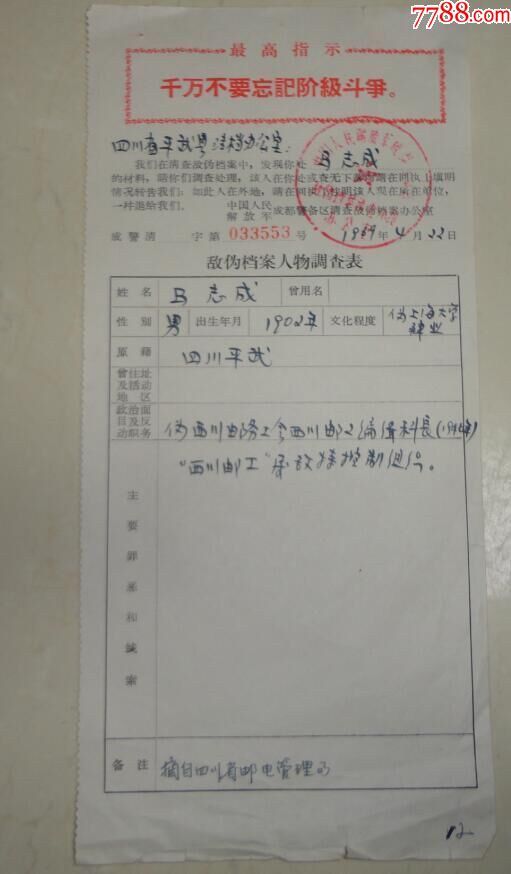 7788.com
最高指示
千万不要忘記阶級斗爭。
四川省平武县清档办公室:
我们在清查敌伪档案中,发現你处 马志成
的材料,請你们調查处理,該人在你处或查无下落均請在回执上填明
情况轉告我们;如此人在外地,請在回执上注明該人現在所在单位,
一并退給我们。
中国人民解放军 成都警备区清查敌伪档案办公室
成警清 字第 033553 号 1969年4月22日
敌伪档案人物調查表
姓名 马志成 曾用名
性別 男 出生年月 1902年 文化程度 伪上海大学肄业
原籍 四川平武
曾住址及活动地区
政治面目及反动职务 伪西川邮务工会西川邮工编辑科長
"西川邮工"系敌特控制
主要罪恶和綫索
备注 摘自四川省邮电管理局
12